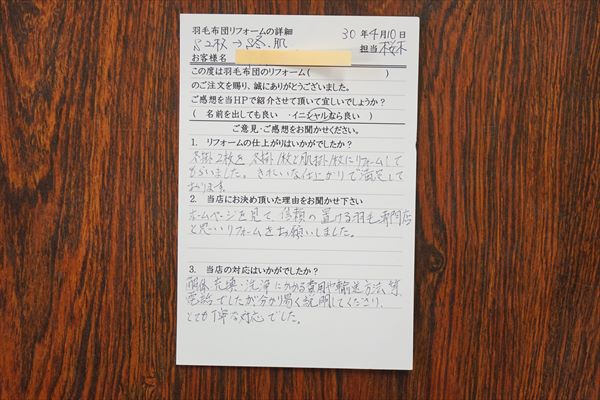 羽毛布団リフォームの詳細
30年4月10日
S2枚→S冬、肌
担当 桜木
お客様名
この度は羽毛布団のリフォーム( )
のご注文を賜り、誠にありがとうございました。
ご感想を当HPで紹介させて頂いて宜しいでしょうか?
( 名前を出しても良い ・イニシャルなら良い )
ご意見・ご感想をお聞かせください。
1. リフォームの仕上がりはいかがでしたか?
冬掛2枚を冬掛1枚と肌掛1枚にリフォームして
もらいました。きれいな仕上がりで満足して
おります。
2. 当店にお決め頂いた理由をお聞かせ下さい
ホームページを見て、信頼の置ける羽毛専門店
と思いリフォームをお願いしました。
3. 当店の対応はいかがでしたか?
解体、充填・洗浄にかかる費用や輸送方法、等、
電話でしたが分かり易く説明してくださり、
とても丁寧な対応でした。